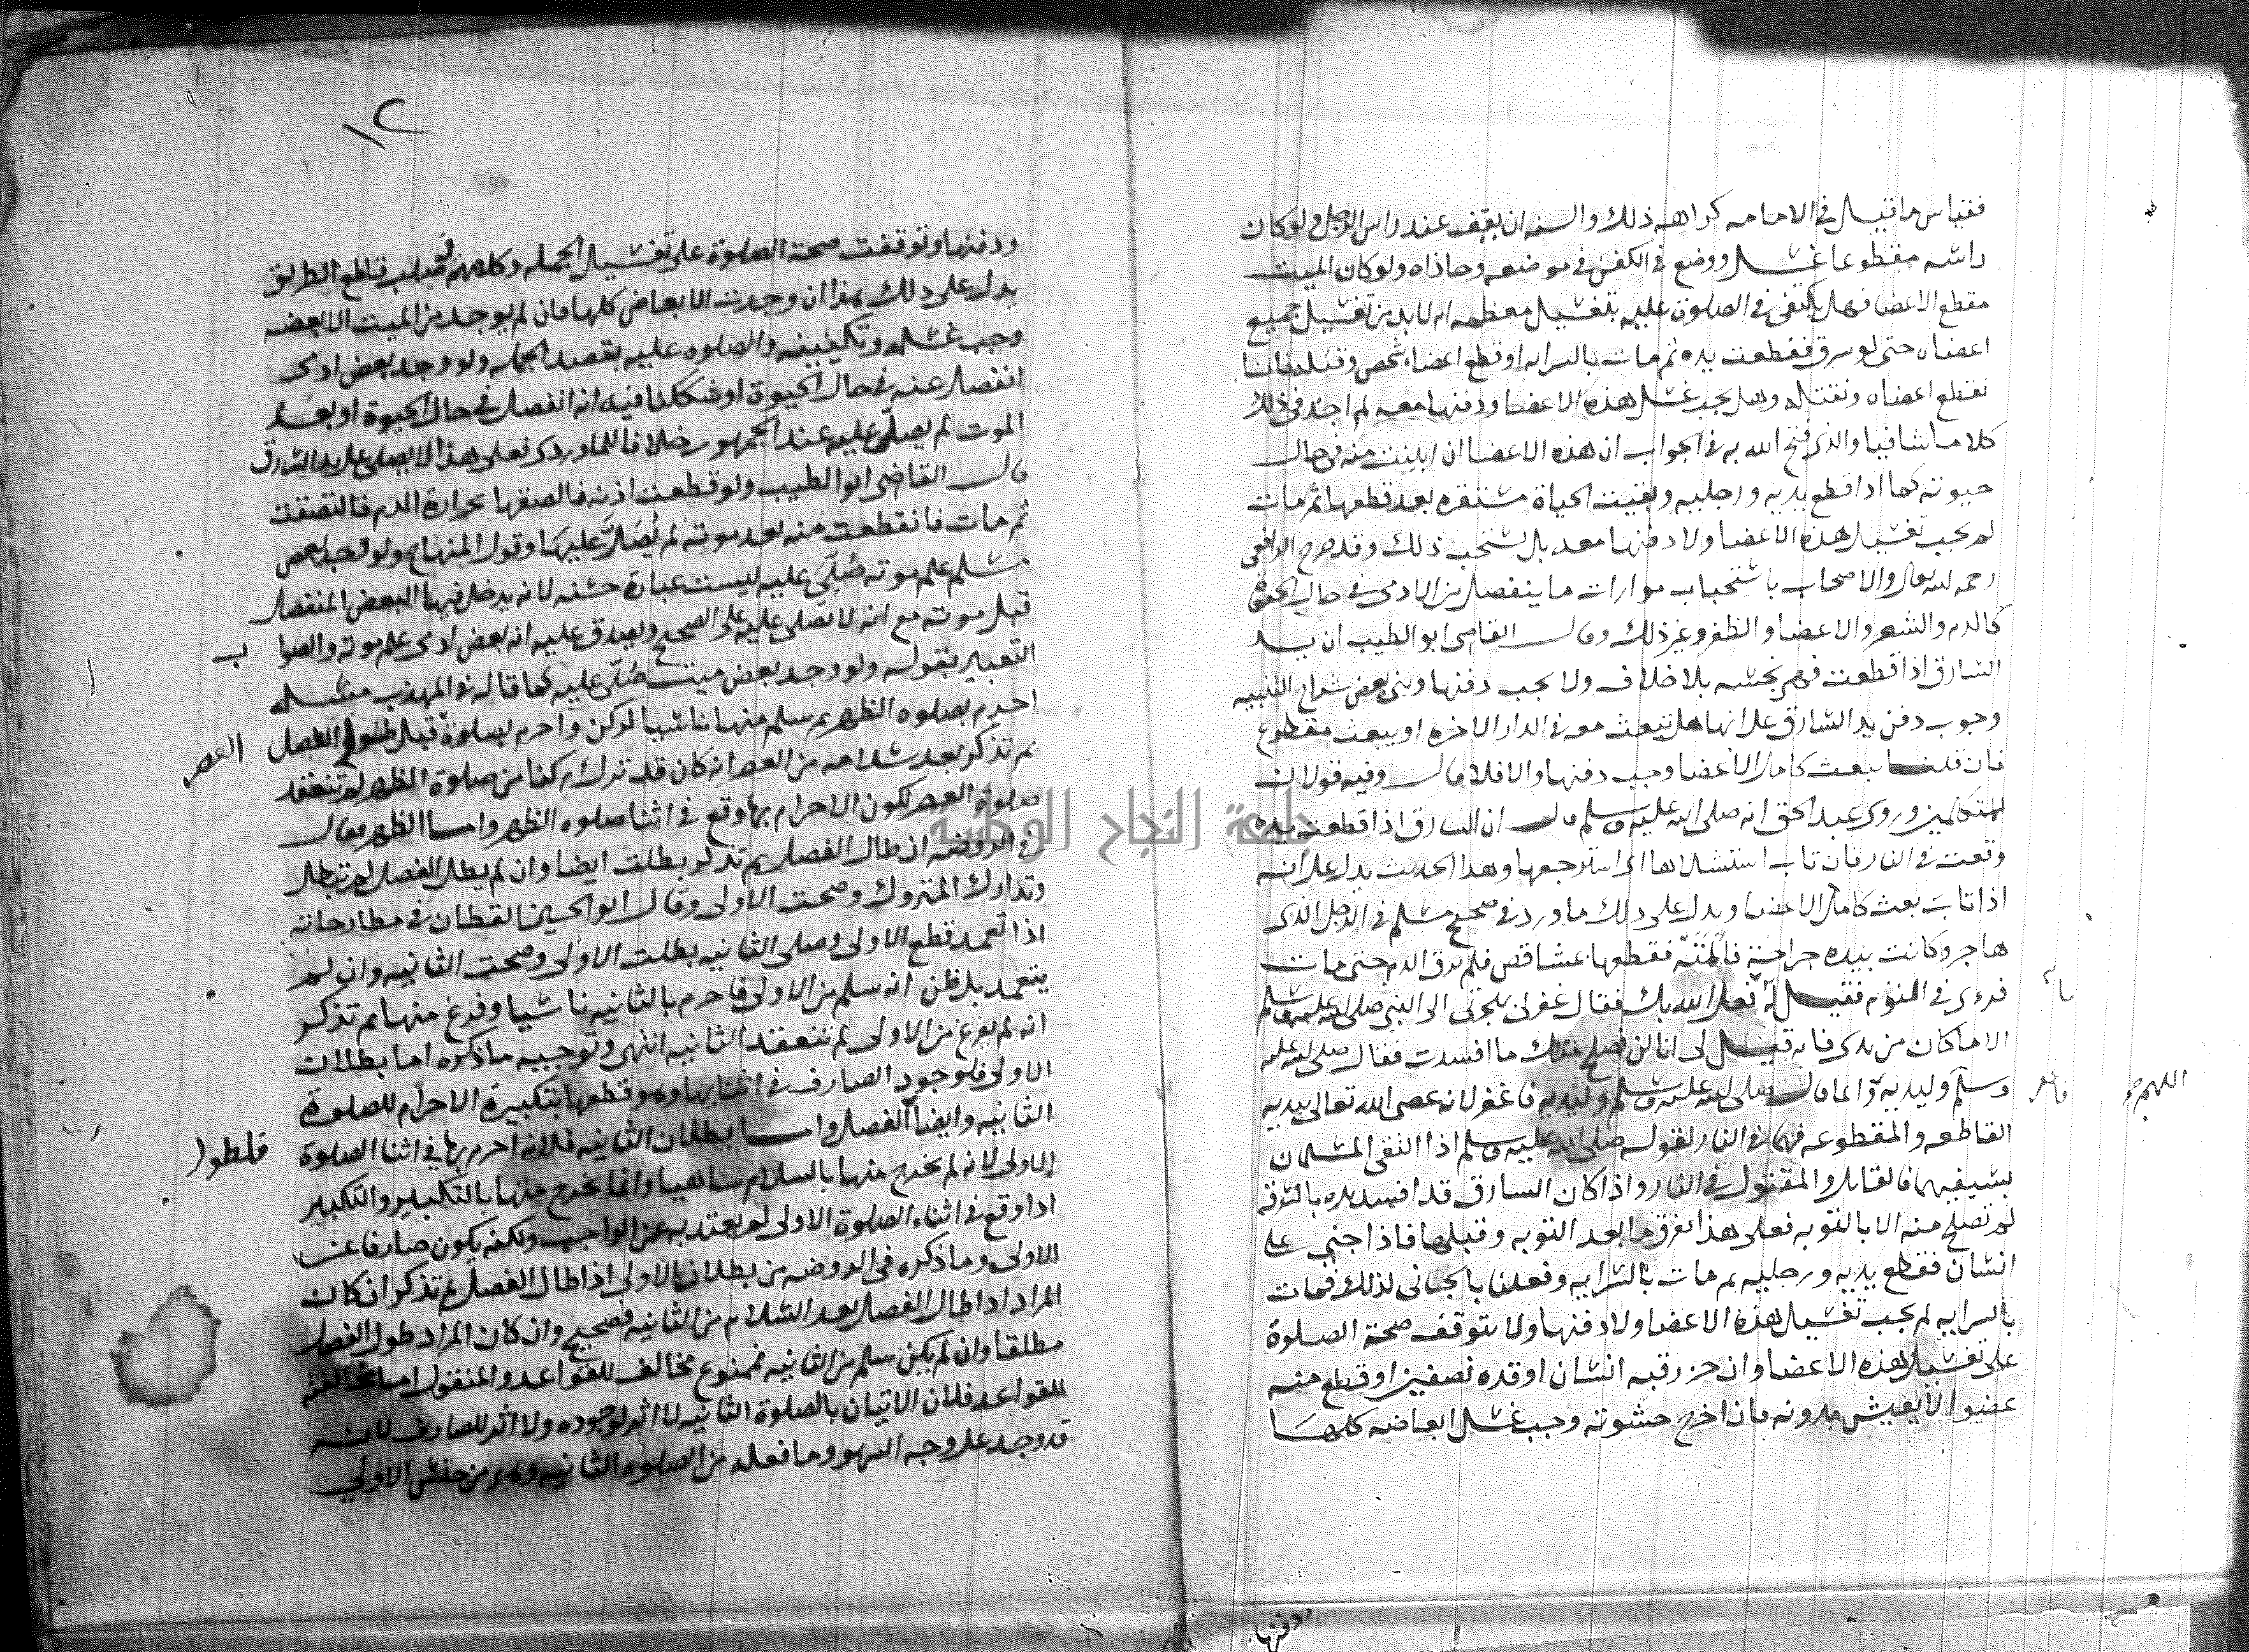 فقياس ما قيل في الامامه كراهه ذلك والسنه ان يقف عند راس الرجل ولو كان
راسه مقطوعا غسل ووضع في الكفن في موضعه وحاذاه ولو كان الميت
مقطع الاعضا فهل يكتفى في الصلوة عليه بتغسيل معظمه ام لا بد من تغسيل جميع
اعضاه حتى لو سرق فقطعت يده ثم مات بالسرايه او قطع اعضاء شخص وقتله فانا
نقطع اعضاه ونقتله وهل يجب غسل هذه الاعضا ودفنها معه لم اجد في ذلك
كلاما شافيا والذى فتح الله به في الجواب ان هذه الاعضا ان ابينت منه في حال
حيوته كما اذا قطع يديه ورجليه وبقيت الحياة مستقره بعد قطعها ثم مات
لم يجب تغسيل هذه الاعضا ولا دفنها معه بل يستحب ذلك وقد صرح الرافعى
رحمه الله تعالى والاصحاب باستحباب موارات ما ينفصل من الادمى في حال الحيوة
كالدم والشعر والاعضا والظفر وغير ذلك وقال القاضى ابو الطيب ان يد
السارق اذا قطعت فهى نجسه بلا خلاف ولا يجب دفنها وبنى بعض شراح التنبيه
وجوب دفن يد السارق على انها هل تبعث معه في الدار الاخره او يبعث مقطوع
فان قلنا يبعث كامل الاعضا وجب دفنها والا فلا قال وفيه قولان
للمتكلمين وروى عبد الحق انه صلى الله عليه وسلم قال ان السارق اذا قطعت يده
وقعت في النار فان تاب استشلاها اى استرجعها وهذا الحديث يدل على انه
اذا تاب بعث كامل الاعضا ويدل على ذلك ما ورد في صحيح مسلم في الرجل الذى
هاجر وكانت بيده جراحة فالمته فقطعها بمشاقص فلم يرق الدم حتى مات
فرءى في النوم فقيل له ما فعل الله بك فقال غفر لى بهجرتى الى النبى صلى الله عليه وسلم
الا ما كان من يدى فانه قيل لى انا لن نصلح منك ما افسدت فقال صلى الله عليه
وسلم وليديه وانما قال صلى الله عليه وسلم وليديه فاغفر لانه عصى الله تعالى بيديه
اللهم
القاطعه والمقطوعه فهما في النار لقوله صلى الله عليه وسلم اذا التقى المسلمان
بسيفيهما فالقاتل والمقتول في النار واذا كان السارق قد افسد يده بالسرقه
لم تصلح منه الا بالتوبه فعلى هذا يفرق ما بعد التوبه وقبلها فاذا جنى على
انسان فقطع يديه ورجليه ثم مات بالسرايه وفعلنا بالجانى لذلك فمات
بالسرايه لم يجب تغسيل هذه الاعضا ولا دفنها ولا يتوقف صحة الصلوة
على تغسيل هذه الاعضا وان حز رقبه انسان او قده نصفين او قطع منه
عضوا لا يعيش بدونه فان اخرج حشوته وجب غسل ابعاضه كلها
ودفنها
١٢
ودفنها وتوقفت صحة الصلوة على تغسيل الجمله وكلامهم في صلب قاطع الطريق
يدل على ذلك هذا ان وجدت الابعاض كلها فان لم يوجد من الميت الا بعضه
وجب غسله وتكفينه والصلوه عليه بقصد الجمله ولو وجد بعض ادمى
انفصل عنه في حال الحيوة او شككنا فيه انه انفصل في حال الحيوة او بعد
الموت لم يصلى عليه عند الجمهور خلافا للماوردى فعلى هذا لا يصلى على يد السارق
قال القاضى ابو الطيب ولو قطعت اذنه فالصقها بحرارة الدم فالتصقت
ثم مات فانقطعت منه بعد موته لم يُصَلَّ عليها وقول المنهاج ولو وجد بعض
مسلم علم موته صُلّى عليه ليست عبارة حسنه لانه يدخل فيها البعض المنفصل
قبل موته مع انه لا يصلى عليه على الصحيح ويصدق عليه انه بعض ادمى علم موته والصواب
التعبير بقوله ولو وجد بعض ميت صُلّى عليه كما قاله في المهذب مسله
احرم بصلوه الظهر ثم سلم منها ناسيا لركن واحرم بصلوة قبل طول الفصل العصر
ثم تذكر بعد سلامه من العصر انه كان قد ترك ركنا من صلوة الظهر لم تنعقد
صلوة العصر لكون الاحرام بها وقع في اثنا صلوه الظهر واما الظهر فقال
في الروضه ان طال الفصل ثم تذكر بطلت ايضا وان لم يطل الفصل لم تبطل
وتدارك المتروك وصحت الاولى وقال ابو الحسين القطان في مطارحاته
اذا تعمد قطع الاولى وصلى الثانيه بطلت الاولى وصحت الثانيه وان لم
يتعمد بل ظن انه سلم من الاولى فاحرم بالثانيه ناسيا وفرغ منها ثم تذكر
انه لم يفرغ من الاولى لم تنعقد الثانيه انتهى وتوجيه ما ذكره اما بطلان
الاولى فلوجود الصارف في اثنايها وهو قطعها بتكبيرة الاحرام للصلوة
الثانيه وايضا الفصل واما بطلان الثانيه فلانه احرم بها في اثنا الصلوة فلطول
الاولى لانه لم يخرج منها بالسلام ساهيا وانما يخرج منها بالتكبير والتكبير
اذا وقع في اثناء الصلوة الاولى لم يعتد به عن الواجب ولكنه يكون صارفا عن
الاولى وما ذكره في الروضه من بطلان الاولى اذا طال الفصل ثم تذكر ان كان
المراد اذا طال الفصل بعد السلام من الثانيه فصحيح وان كان المراد طول الفصل
مطلقا وان لم يكن سلم من الثانيه فممنوع مخالف للقواعد والمنقول اما مخالفته
للقواعد فلان الاتيان بالصلوة الثانيه لا اثر لوجوده ولا اثر للصارف لانه
قد وجد على وجه السهو وما فعله من الصلوه الثانيه وهى من جنس الاولى
جامعة النجاح الوطنية